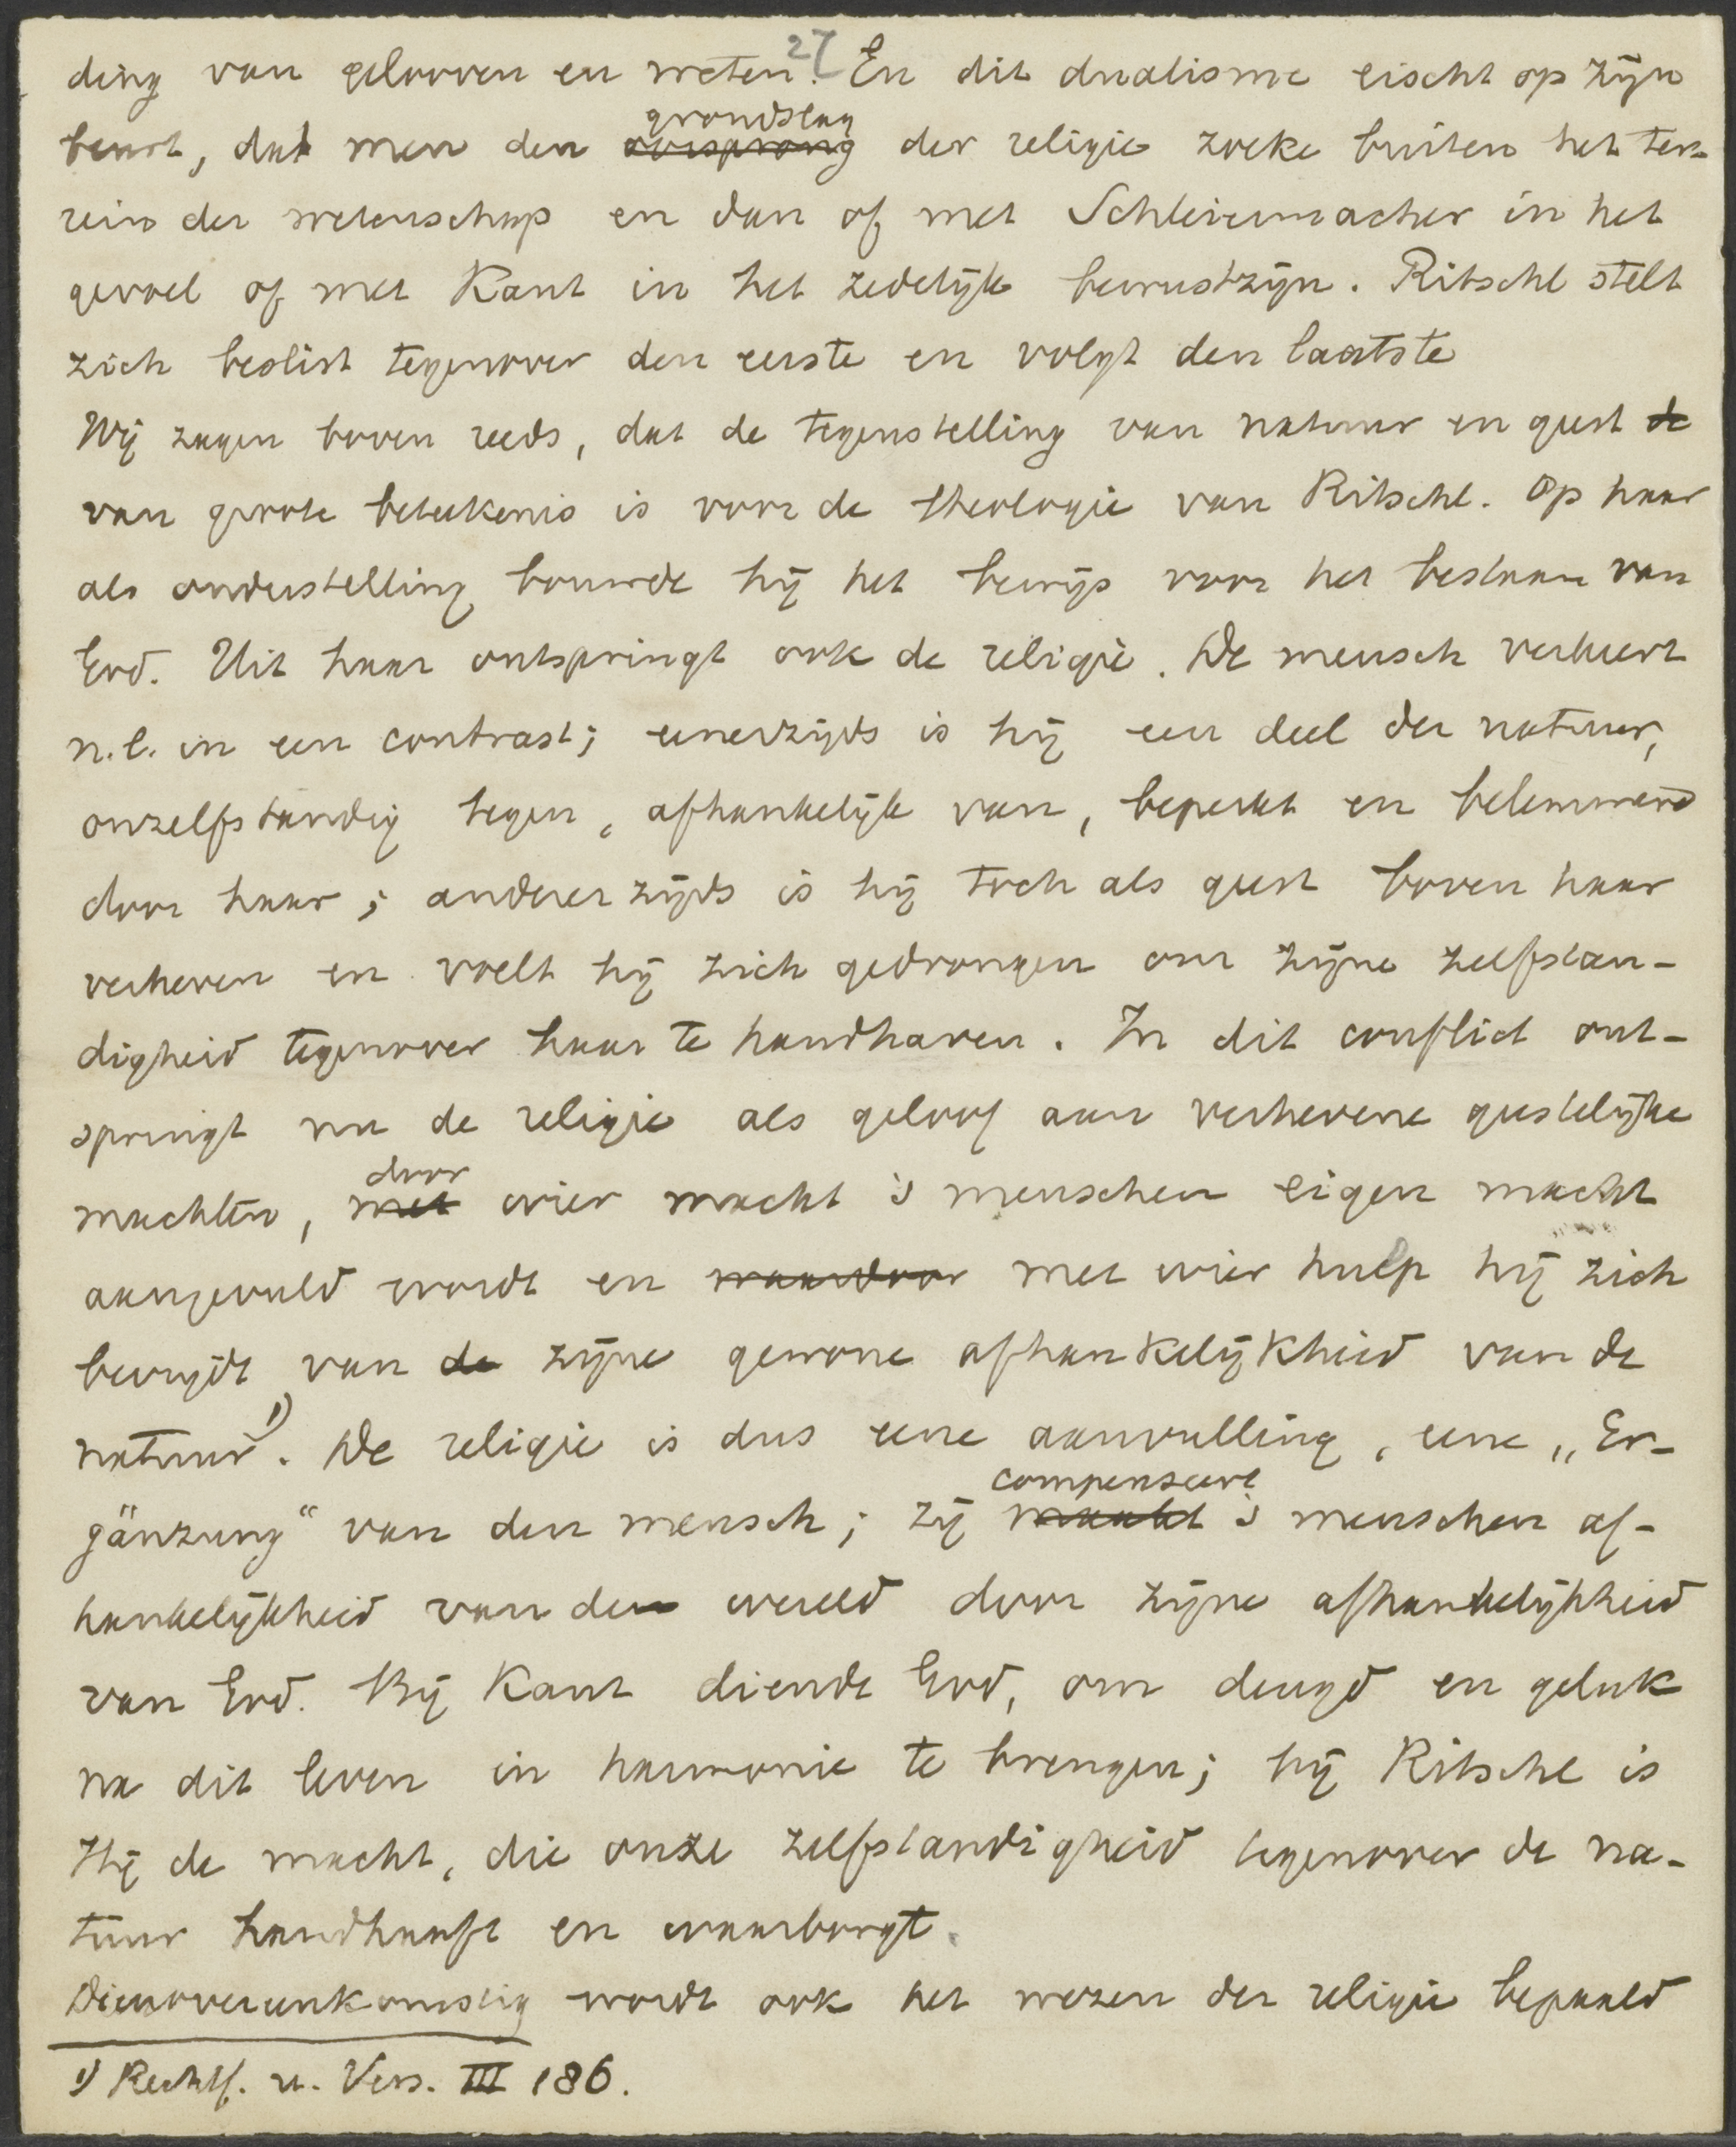 27
ding van gelooven en weten. En dit dualisme eischt op zijn
beurt, dat men den grondslag oorsprong der religie zoeke buiten het ter-
rein der wetenschap en dan of met Schleiermacher in het
gevoel of met Kant in het zedelijk bewustzijn. Ritschl stelt
zich beslist tegenover den eerste en volgt den laatste
Wij zagen boven reeds, dat de tegenstelling van natuur en geest de
van groote beteekenis is voor de theologie van Ritschl. Op haar
als onderstelling bouwde hij het bewijs voor het bestaan van
God. Uit haar ontspringt ook de religie. De mensch verkeert
n.l. in een contrast; eenerzijds is hij een deel der natuur,
onzelfstandig tegen, afhankelijk van, beperkt en belemmerd
door haar; andererzijds is hij toch als geest boven haar
verheven en voelt hij zich gedrongen om zijne zelfstan-
digheid tegenover haar te handhaven. In dit conflict ont-
springt nu de religie als geloof aan verhevene geestelijke
machten, door met wier macht 's menschen eigen macht
aangevuld wordt en waardoor met wier hulp hij zich
bevrijdt van de zijne gewone afhankelijkheid van de
natuur 1). De religie is dus eene aanvulling, eene „Er-
gänzung“ van den mensch; zij compenseert maakt 's menschen af-
hankelijkheid van den wereld door zijne afhankelijkheid
van God. Bij Kant diende God, om deugd en geluk
na dit leven in harmonie te brengen; bij Ritschl is
Hij de macht, die onze zelfstandigheid tegenover de na-
tuur handhaaft en waarborgt.
Dienovereenkomstig wordt ook het wezen der religie bepaald
1) Rechtf. u. Vers. III 186.